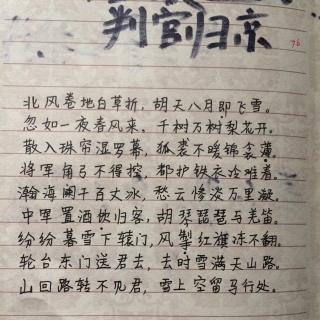 判官归京
76
北风卷地白草折，胡天八月即飞雪。
忽如一夜春风来，千树万树梨花开。
散入珠帘湿罗幕，狐裘不暖锦衾薄。
将军角弓不得控，都护铁衣冷难着。
瀚海阑干百丈冰，愁云惨淡万里凝。
中军置酒饮归客，胡琴琵琶与羌笛。
纷纷暮雪下辕门，风掣红旗冻不翻。
轮台东门送君去，去时雪满天山路。
山回路转不见君，雪上空留马行处。